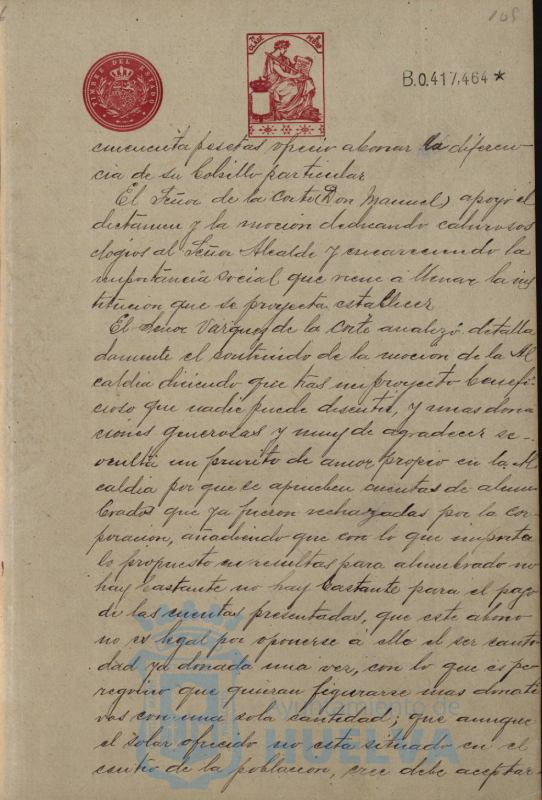 105
TIMBRE DEL ESTADO
CLASE
B.0.417.464*
cincuenta pesetas ofreció abonar la diferen-
cia de su bolsillo particular
El Señor de la Corte (Don Manuel) apoyó el
dictamen y la moción dedicando calurosos
elogios al Señor Alcalde y encareciendo la
importancia social que viene á llenar la ins
titucion que se proyecta establecer
El Señor Vazquez de la Corte analizó detalla
damente el contenido de la mocion de la Al
caldia diciendo que tras un proyecto benefi-
cioso que nadie puede discutir, y unas dona
ciones generosas y muy de agradecer se
oculta un prurito de amor propio en la Al
caldia por que se aprueben cuentas de alum
brados que ya fueron rechazadas por la cor-
poracion, añadiendo que con lo que importa
lo propuesto en resultas para alumbrado no
hay bastante no hay bastante para el pago
de las cuentas presentadas, que este abono
no es legal por oponerse á ello el ser canti-
dad ya donada una vez, con lo que es pe-
regrino que quieran figurarse mas donati
vos con una sola cantidad; que aunque
el solar ofrecido no está situado en el
centro de la poblacion, cree debe aceptar-
Ayuntamiento de
HUELVA